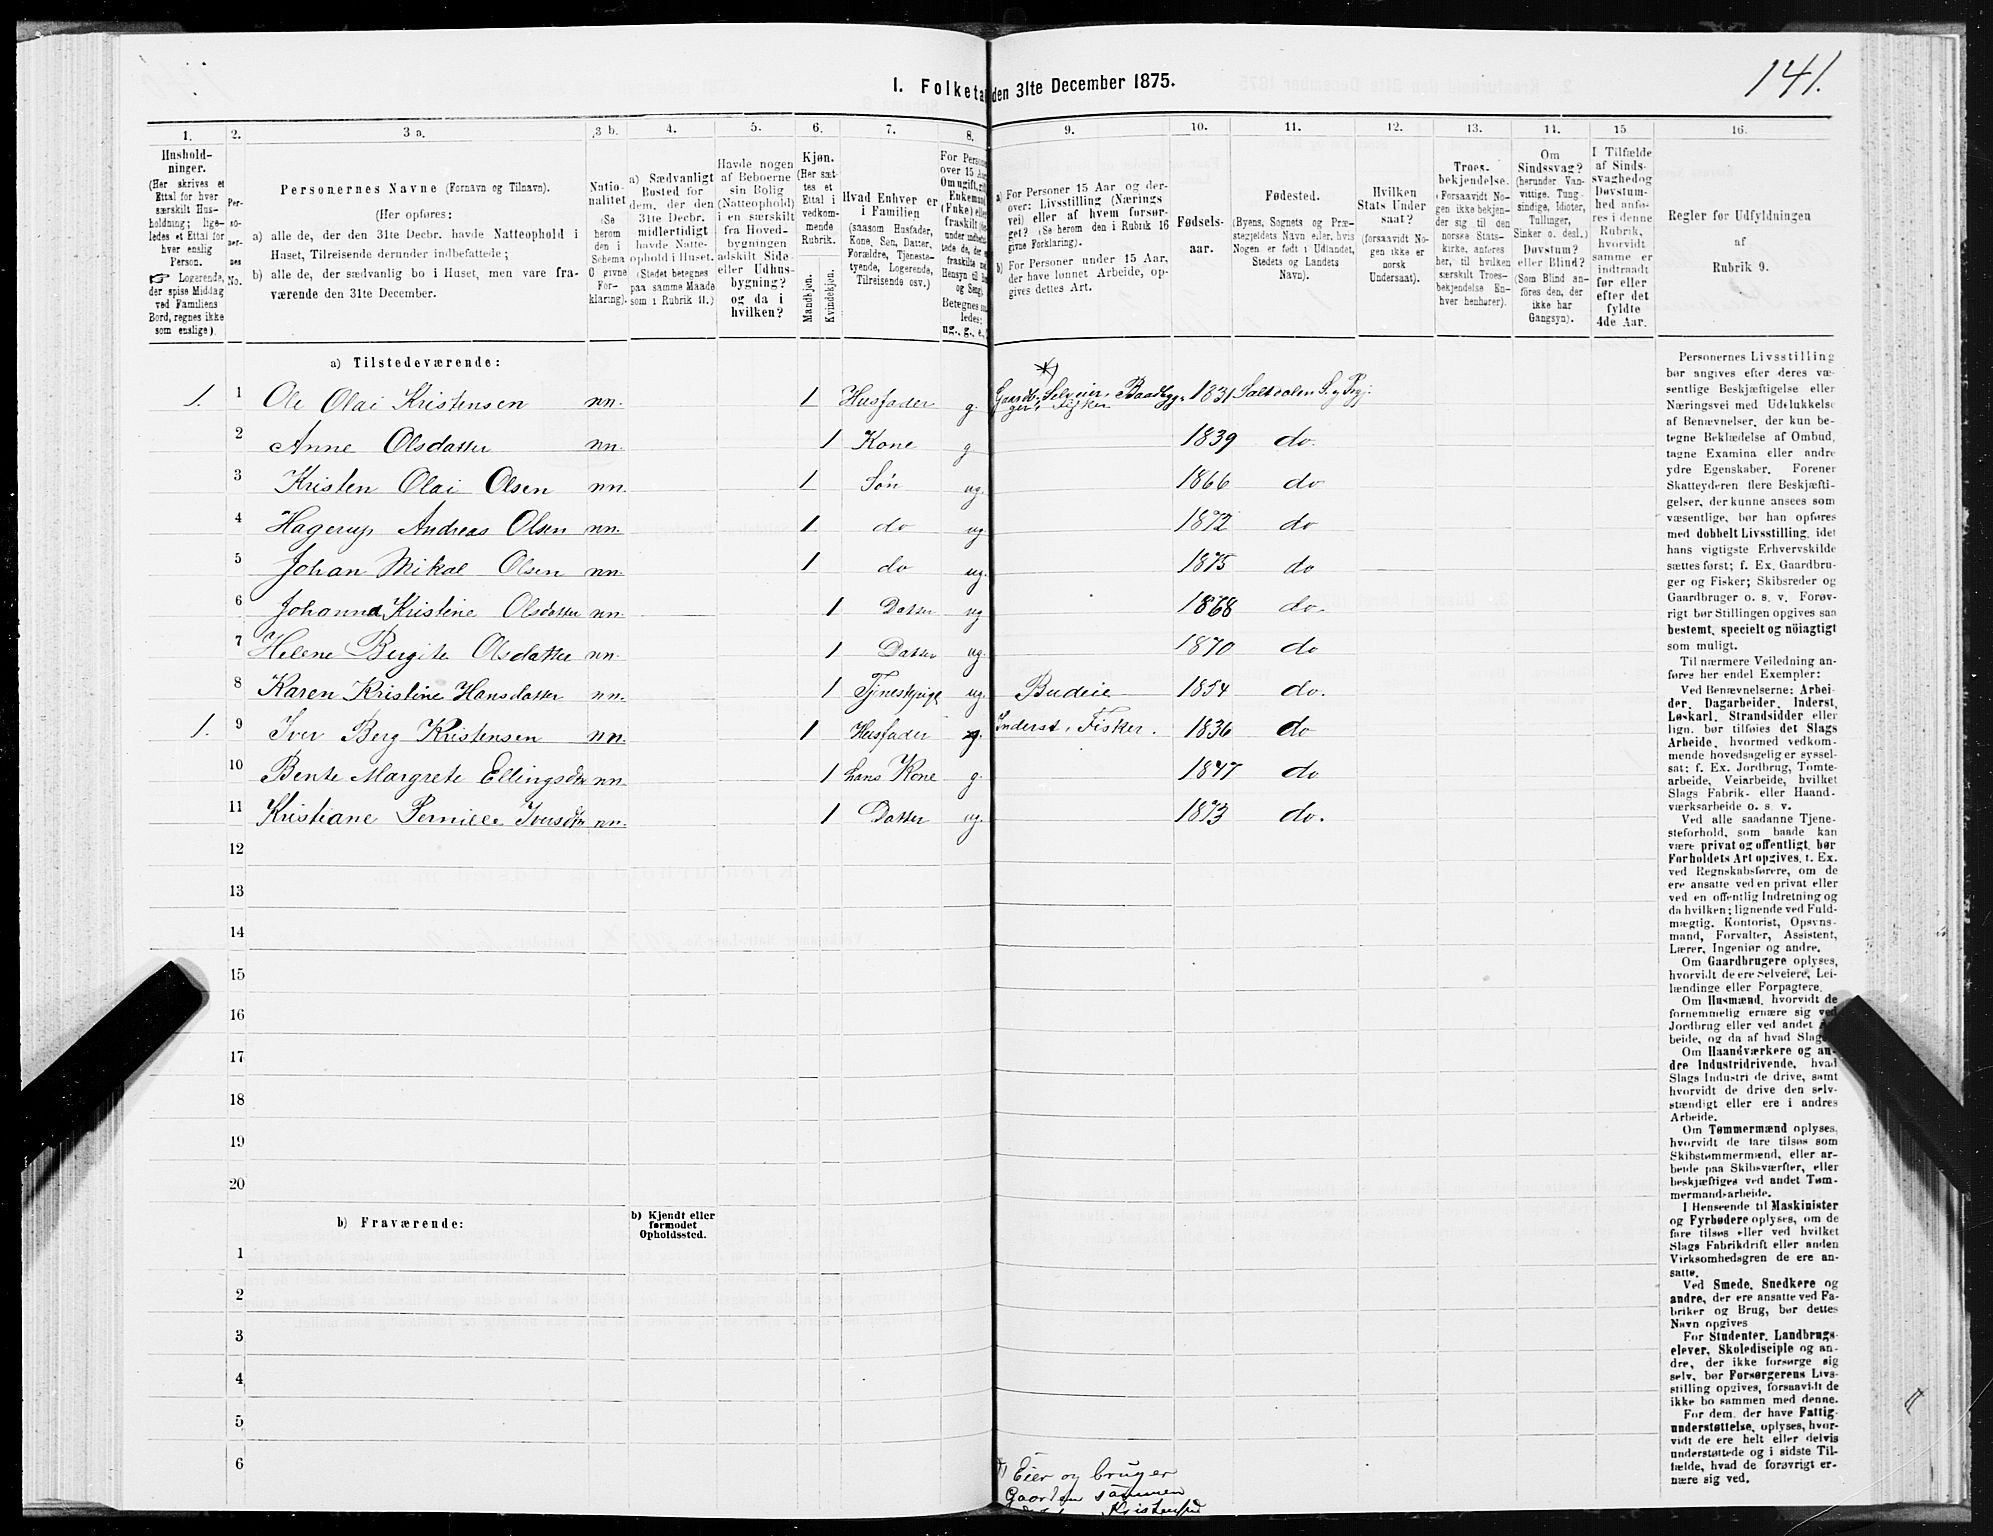 141.
I. Folketa den 31te December 1875.
1. 2. 3 a. 3 b. 4. 5. 6. 7. 8. 9. 10. 11. 12. 13. 14. 15 16.
Hushold-
ninger.
(Her skrives et
Ettal for hver
særskilt Hus-
holdning; lige-
ledes et Ettal for
hver enslig
Person.
☞ Logerende,
der spise Middag
ved Familiens
Bord, regnes ikke
som enslige).
Per-
so-
ner-
nes
No.
Personernes Navne (Fornavn og Tilnavn).
(Her opføres:
a) alle de, der den 31te Decbr. havde Natteophold i
Huset, Tilreisende derunder indbefattede;
b) alle de, der sædvanlig bo i Huset, men vare fra-
værende den 31te December.
Natio-
nalitet
(Se
herom
den i
Schema
G givne
For-
klaring).
a) Sædvanligt
Bosted for
dem, der den
31te Decbr.
midlertidigt
havde Natte-
ophold i Huset.
(Stedet betegnes
paa samme Maade
som i Rubrik 11.)
Havde nogen
af Beboerne
sin Bolig
(Natteophold)
i en særskilt
fra Hoved-
bygningen
adskilt Side-
eller Udhus-
bygning?
og da i
hvilken?
Kjøn.
(Her sæt-
tes et
Ettal i
vedkom-
mende
Rubrik.
Mandkjøn.
Kvindekjøn.
Hvad Enhver er
i Familien
(saasom Husfader,
Kone, Søn, Datter,
Forældre, Tjeneste-
tyende, Logerende,
Tilreisende osv.)
For Persone
over 15 Aa
Om ugift,
Enkemand
(Enke) elle
fraskilt
Betegnes
ledes:
ug., g., e.,
a) For Personer 15 Aar og der-
over: Livsstilling (Nærings
vei) eller af hvem forsør-
get? (Se herom den i Rubrik 16
givne Forklaring).
b) For Personer under 15 Aar,
der have lønnet Arbeide, op-
gives dettes Art.
Fødsels-
aar.
Fødested.
(Byens, Sognets og Præ-
stegjeldets Navn eller, hvis
Nogen er født i Udlandet,
Stedets og Landets
Navn).
Hvilken
Stats Under
saat?
(forsaavidt No-
gen ikke er
norsk
Undersaat).
Troes-
bekjendelse.
(Forsaavidt No-
gen ikke bekjen-
der sig til den
norske Stats-
kirke, anføres
her, til hvilken
særskilt Troes-
bekjendelse En-
hver henhører).
Om
Sindssvag?
(herunder Van-
vittige, Tung-
sindige, Idioter,
Tullinger,
Sinker o. desl.)
Døvstum?
eller Blind?
(Som Blind an-
føres den, der
ikke har
Gangsyn).
I Tilfælde
af Sinds-
svaghed og
Døvstum-
hed anfø-
res i denne
Rubrik,
hvorvidt
samme er
indtraadt
før eller
efter det
fyldte
4de Aar.
Regler før Udfyldningen
af
Rubrik 9.
a) Tilstedeværende:
1. 1 Ole Olai Kristensen nn. 1 Husfader g. *) Gaardbr. Selveier, Baadbygger, Fisker 1831 Saltdalen S. og Pgj.
2 Anne Olsdatter nn. 1 Kone g 1839 do.
3 Kristen Olai Olsen nn. 1 Søn ug. 1866 do
4 Hagerup Andreas Olsen nn. 1 do ug. 1872 do
5 Johan Mikal Olsen nn. 1 do ug. 1875 do
6 Johanna Kristine Olsdatter nn. 1 Datter ug 1868 do.
7 Helene Bergite Olsdatter nn. 1 Datter ug. 1870 do
8 Karen Kristine Hansdatter nn. 1 Tjenestpige ug. Budeie 1854 do.
1. 9 Iver Berg Kristensen nn. 1 Husfader g. Inderst, Fisker. 1836 do
10 Bente Margrete Ellingsdtr nn. 1 hans Kone g. 1847 do
11 Kristiane Pernille Iversdtr nn. 1 Datter ug. 1873 do.
12
13
14
15
16
17
18
19
20
b) Fraværende:
b) Kjendt eller
formodet
Opholdssted.
1
2
3
4
5
6
*) Eier og bruger
Gaarden sammen
Kristensen
Personernes Livsstilling
bør angives efter deres væ-
sentlige Beskjæftigelse eller
Næringsvei med Udelukkelse
af Benævnelser, der kun be-
tegne Beklædelse af Ombud,
tagne Examina eller andre
ydre Egenskaber. Forener
Skatteyderen flere Beskjæfti-
gelser, der kunne ansees som
væsentlige, bør han opføres
med dobbelt Livsstilling, idet
hans vigtigste Erhvervskilde
sættes først; f. Ex. Gaardbru-
ger og Fisker; Skibsreder og
Gaardbruger o. s. v. Forøv-
rigt bør Stillingen opgives saa
bestemt, specielt og nöiagtigt
som muligt.
Til nærmere Veiledning an-
føres her endel Exempler:
Ved Benævnelserne: Arbei-
der, Dagarbeider, Inderst,
Løskarl, Strandsidder eller
lign. bør tilføies det Slags
Arbeide, hvormed vedkom-
mende hovedsagelig er syssel-
sat; f. Ex. Jordbrug, Tomte-
arbeide, Veiarbeide, hvilket
Slags Fabrik- eller Haand-
værksarbeide o. s. v.
Ved alle saadanne Tjene-
steforhold, som baade kan
være privat og offentligt, bør
Forholdets Art opgives, t. Ex.
ved Regnskabsførere, om de
ere ansatte ved en privat eller
ved en offentlig Indretning og
da hvilken; lignende ved Fuld-
mægtig, Kontorist, Opsyns-
mand, Forvalter, Assistent,
Lærer, Ingeniør og andre.
Om Gaardbrugere oplyses,
hvorvidt de ere Selveiere, Lei-
lændinge eller Forpagtere.
Om Husmænd, hvorvidt de
fornemmelig ernære sig ved
Jordbrug eller ved andet Ar-
beide, og da af hvad Slags.
Om Haandværkere og an-
dre Industridrivende, hvad
Slags Industri de drive, samt
hvorvidt de drive den selv-
stændigt eller ere i andres
Arbeide.
Om Tømmermænd oplyses,
hvorvidt de fare tilsøs som
Skibstømmermænd, eller ar-
beide paa Skibsværfter, eller
beskjæftiges ved andet Tøm-
mermandsarbeide.
I Henseende til Maskinister
og Fyrbødere oplyses, om de
fare tilsøs eller ved hvilket
Slags Fabrikdrift eller anden
Virksomhedsgren de ere an-
satte.
Ved Smede, Snedkere og
andre, der ere ansatte ved Fa-
briker og Brug, bør dettes
Navn opgives
For Studenter, Landbrugs-
elever, Skoledisciple og an-
dre, der ikke forsørge sig
selv, bør Forsørgerens Livs-
stilling opgives, forsaavidt de
ikke bo sammen med denne.
For dem, der have Fattig-
understøttelse, oplyses, hvor-
vidt de ere helt eller delvis
understøttede og i sidste Til-
fælde, hvad de forøvrigt er-
nære sig ved.